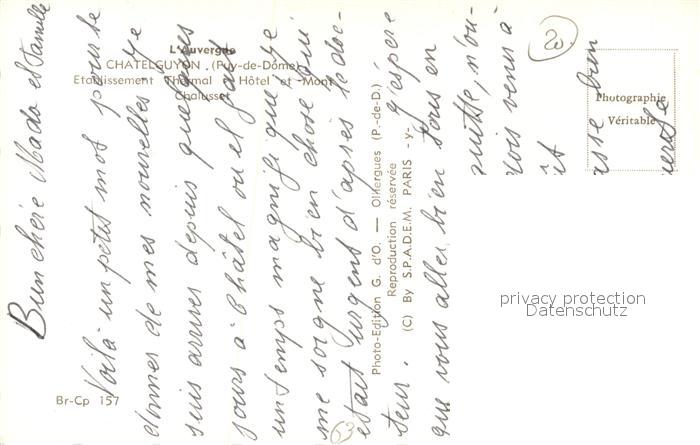 L'Auvergne
CHATELGUYON (Puy-de-Dôme)
Etablissement Thermal - Hôtel et Mont
Chalusset
Photographie
Véritable
Br-Cp 157
Photo-Edition G. d'O. — Olliergues (P.-de-D.)
Reproduction réservée
(C) By S.P.A.D.E.M. PARIS -y-
20
63
privacy protection
Datenschutz
chère Mado et famille
Voilà un petit mot pour te
donner de mes nouvelles. je
suis arrivée depuis quelques
jours à Châtel ou el fait
un temps magnifique je
me soigne bien chose qui
etait urgent d'après le doc-
teur. j'éspère
que vous allez bien tous en
vois venir à
bon